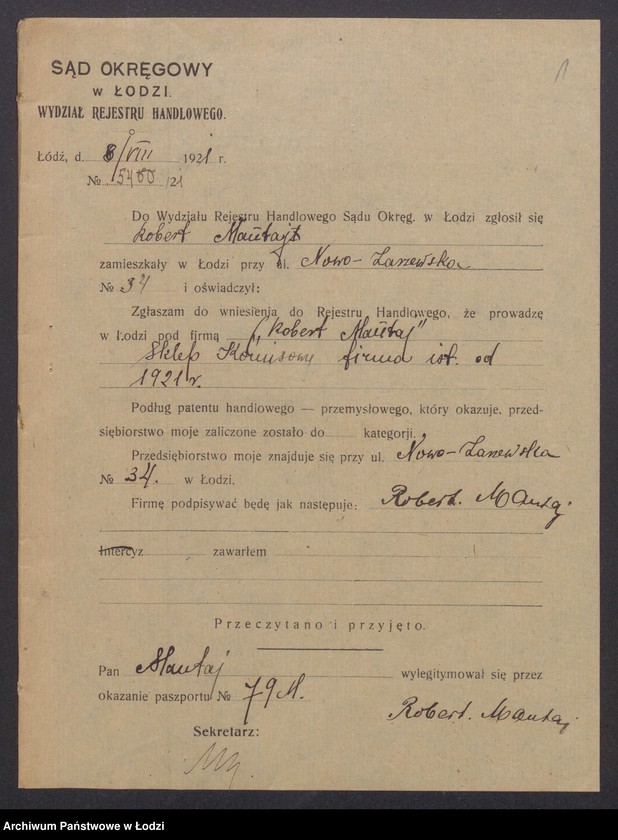 SĄD OKRĘGOWY
w ŁODZI.
WYDZIAŁ REJESTRU HANDLOWEGO.
Łódź, d. 8/VIII 1921 r.
№ 5400/21
Do Wydziału Rejestru Handlowego Sądu Okręg. w Łodzi zgłosił się
Robert Mantaj
zamieszkały w Łodzi przy ul. Nowo-Zarzewska
№ 34 i oświadczył:
Zgłaszam do wniesienia do Rejestru Handlowego, że prowadzę
w Łodzi pod firmą „Robert Mantaj"
Sklep Komisowy firma ist. od
1921 r.
Podług patentu handlowego — przemysłowego, który okazuje, przed-
siębiorstwo moje zaliczone zostało do kategorji.
Przedsiębiorstwo moje znajduje się przy ul. Nowo-Zarzewska
№ 34. w Łodzi.
Firmę podpisywać będę jak następuje: Robert. Mantaj
Intercyz zawarłem
Przeczytano i przyjęto.
Pan Mantaj wylegitymował się przez
okazanie paszportu № 79 M.
Robert. Mantaj.
Sekretarz:
Archiwum Państwowe w Łodzi